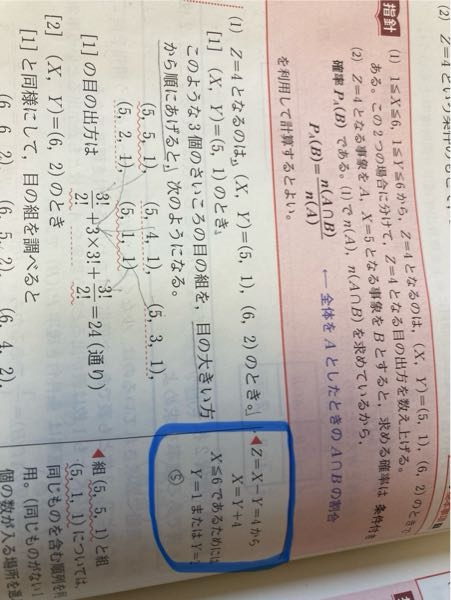 (2) Z=4という条件の
指針
(1) 1≦X≦6, 1≦Y≦6から, Z=4となるのは, (X, Y)=(5, 1), (6, 2)のときで
ある。この2つの場合に分けて, Z=4となる目の出方を数え上げる。
(2) Z=4となる事象をA, X=5となる事象をBとすると, 求める確率は 条件付き
確率 P_A(B) である。(1)でn(A), n(A∩B)を求めているから,
P_A(B)=n(A∩B)/n(A) ← 全体をAとしたときのA∩Bの割合
を利用して計算するとよい。
(1) Z=4となるのは, (X, Y)=(5, 1), (6, 2)のとき。
[1] (X, Y)=(5, 1)のとき
このような3個のさいころの目の組を, 目の大きい方
から順にあげると, 次のようになる。
(5, 5, 1), (5, 4, 1), (5, 3, 1),
(5, 2, 1), (5, 1, 1)
[1]の目の出方は 3!/2!+3×3!+3!/2!=24(通り)
[2] (X, Y)=(6, 2)のとき
[1]と同様にして, 目の組を調べると
(6, 6, 2), (6, 5, 2), (6, 4, 2),
◀Z=X-Y=4から
X=Y+4
X≦6であるためには
Y=1 または Y=2
◀組(5, 5, 1)と組
(5, 1, 1)については,
同じものを含む順列を利
用。(同じものがない1
個の数が入る場所を選